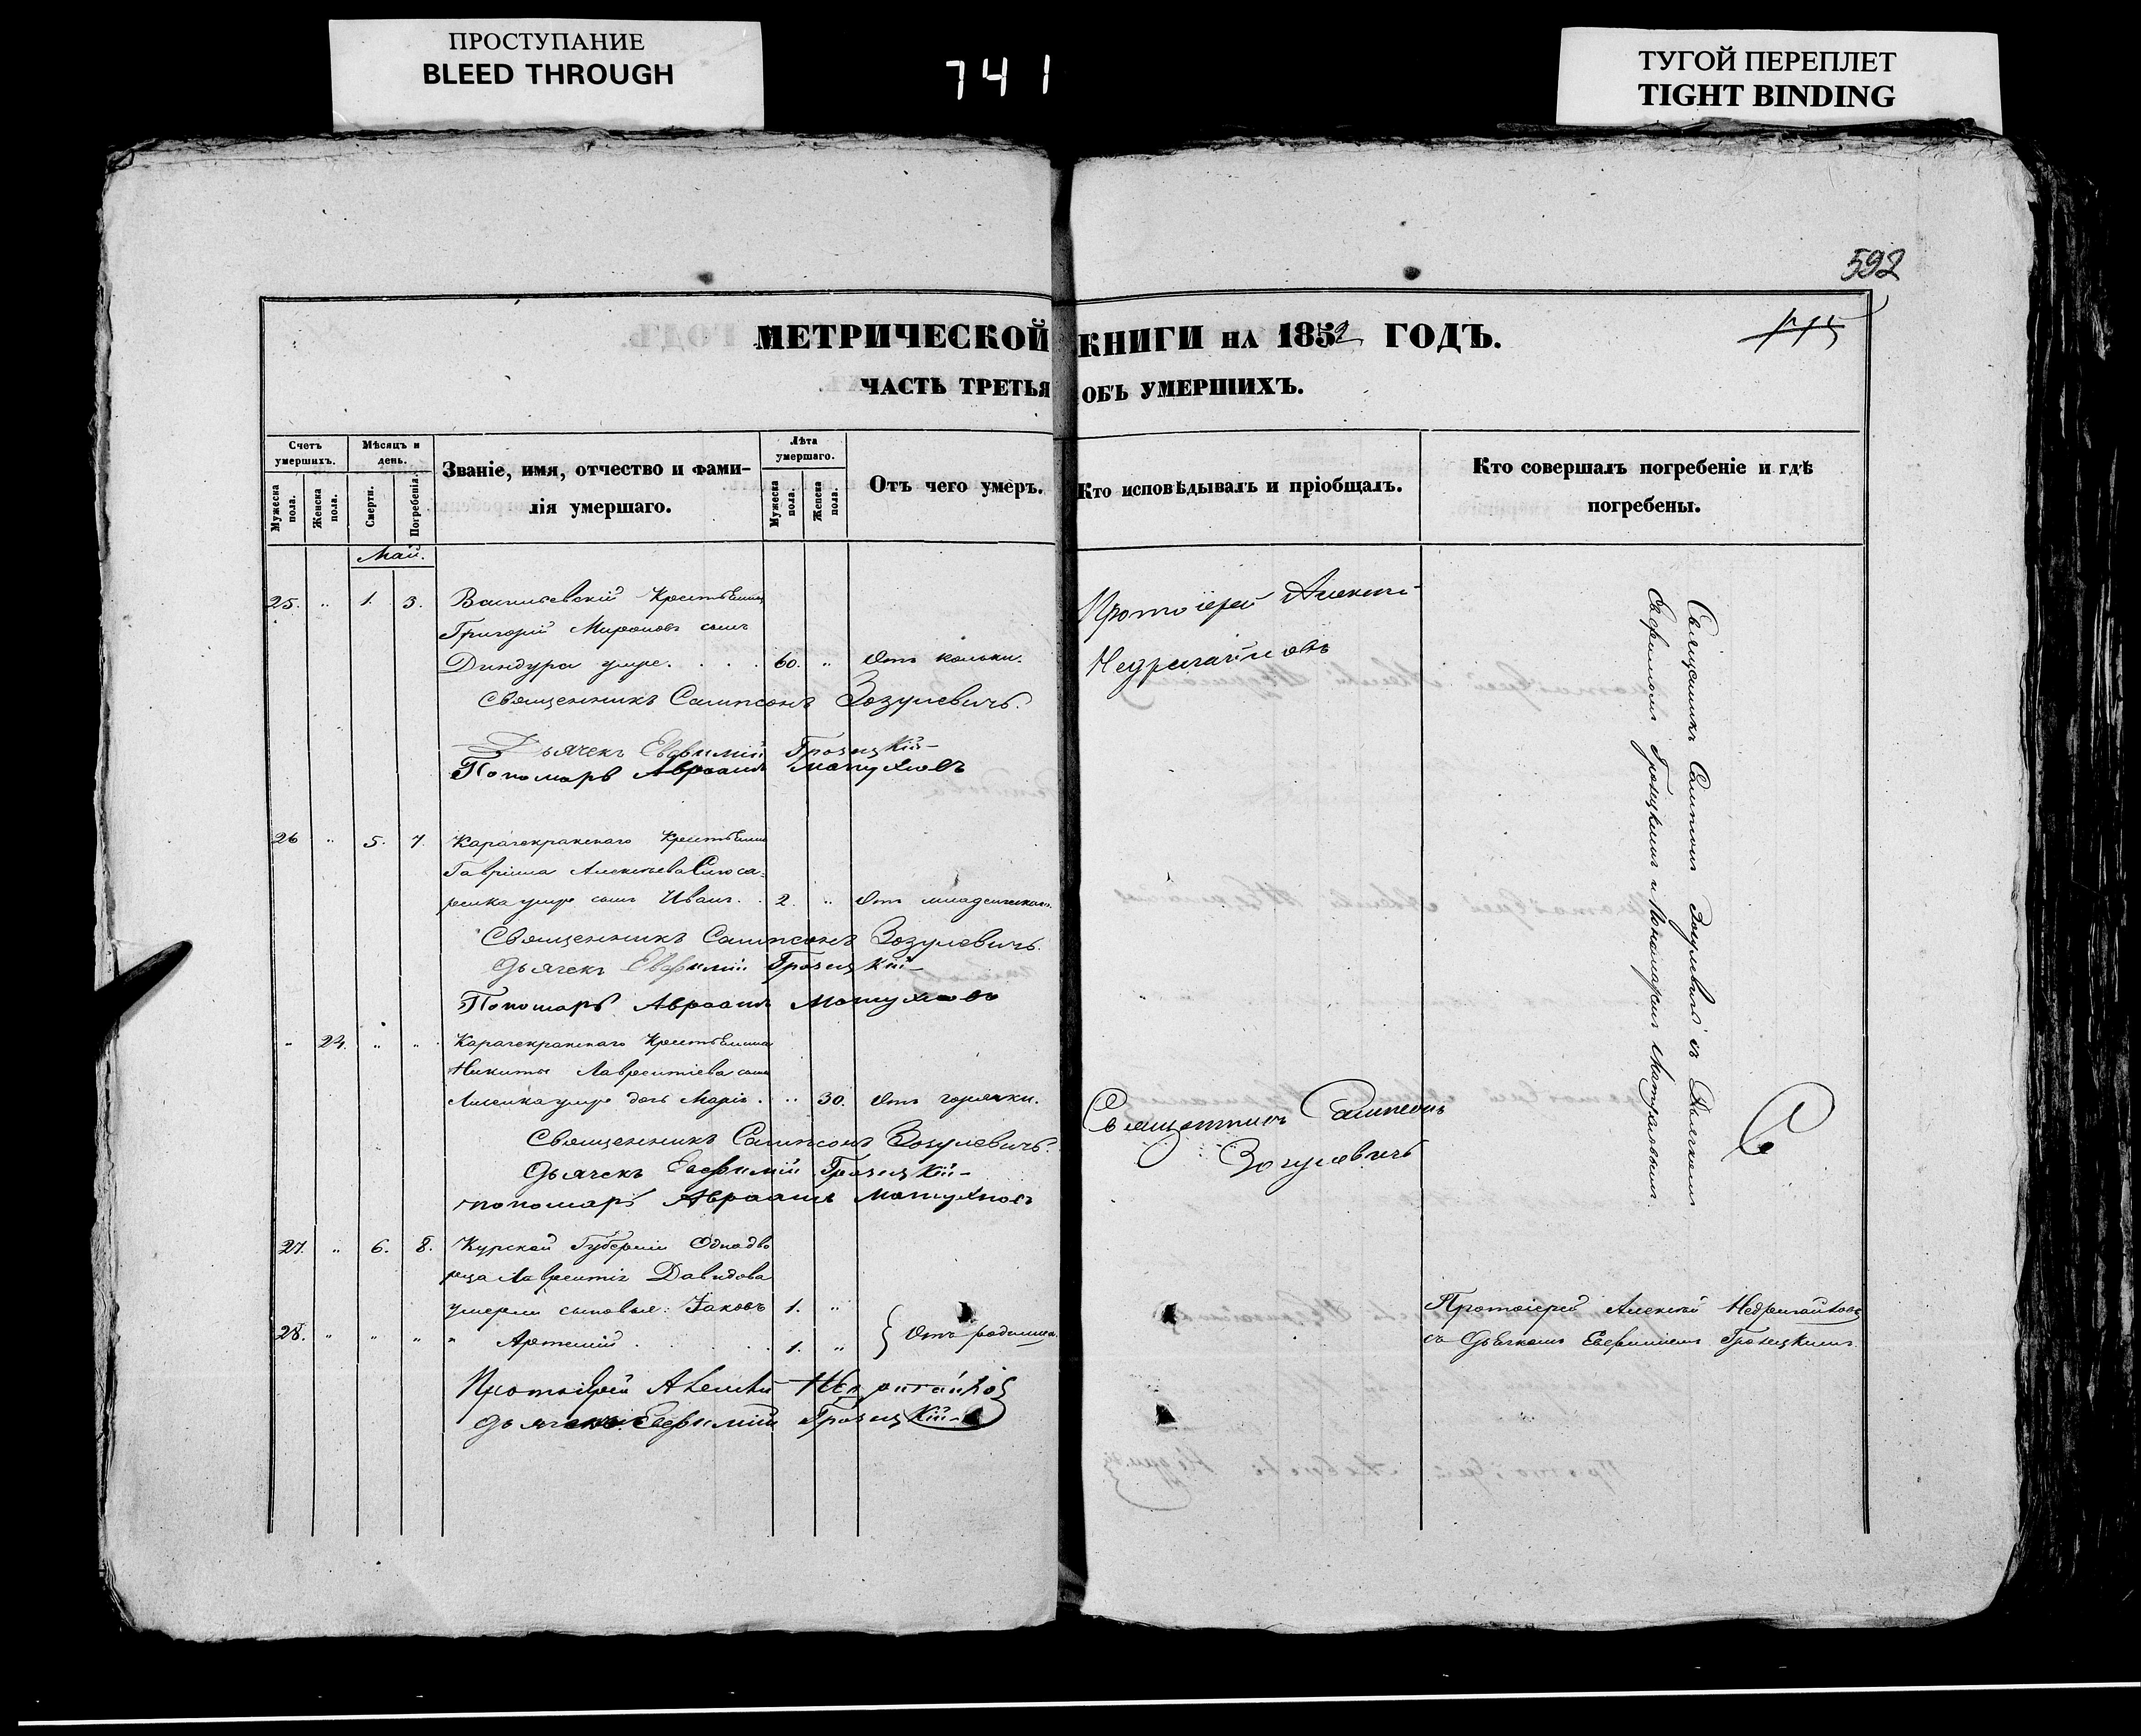 ПРОСТУПАНИЕ
BLEED THROUGH
741
ТУГОЙ ПЕРЕПЛЕТ
TIGHT BINDING
592
МЕТРИЧЕСКОЙ КНИГИ на 1852 ГОДЪ.
ЧАСТЬ ТРЕТЬЯ ОБЪ УМЕРШИХЪ.
Счетъ умершихъ.
Мужеска пола.
Женска пола.
Мѣсяцъ и день.
Смерти.
Погребенія.
Званіе, имя, отчество и фами-
лія умершаго.
Лѣта умершаго.
Мужеска пола.
Женска пола.
Отъ чего умеръ.
Кто исповѣдывалъ и пріобщалъ.
Кто совершалъ погребеніе и гдѣ
погребены.
Май.
25. " 1. 3. Васильевскій Крестьянинъ
Григорій Мироновъ сынъ
Диндура умре. 60. " Отъ кольки.
Протоіерей Алексій
Недригайловъ
Священникъ Сампсонъ Зозулевичъ.
Дьячекъ Евфимій Грозицкій
Пономарь Авраамъ Матухновъ
26 " 5. 7. Карачекракскаго Крестьянина
Гавріила Алексѣева Слюса-
ренка умре сынъ Иванъ. 2. " Отъ младенческой.
Священникъ Сампсонъ Зозулевичъ.
Дьячекъ Евфимій Грозицкій
Пономарь Авраамъ Матухновъ
" 24. " " Карачекракскаго Крестьянина
Никиты Лаврентіева сына
умре дочь Марія. " 30. Отъ горячки.
Священникъ Сампсонъ
Зозулевичъ
Священникъ Сампсонъ Зозулевичъ.
Дьячекъ Евфимій Грозицкій
пономарь Авраамъ Матухновъ
Священникъ Сампсонъ Зозулевичъ съ Дьячкомъ
Евфиміемъ Грозицкимъ и Пономаремъ
27. " 6. 8. Курской Губерніи Однодво
рца Лаврентія Давидова
умерли сыновья: Іаковъ 1. "
28. " " " " Артемій 1. " } Отъ родимца.
Протоіерей Алексій Недригайловъ
съ Дьячкомъ Евфиміемъ Грозицкимъ.
Протоіерей Алексій Недригайловъ
Дьячекъ Евфимій Грозицкій